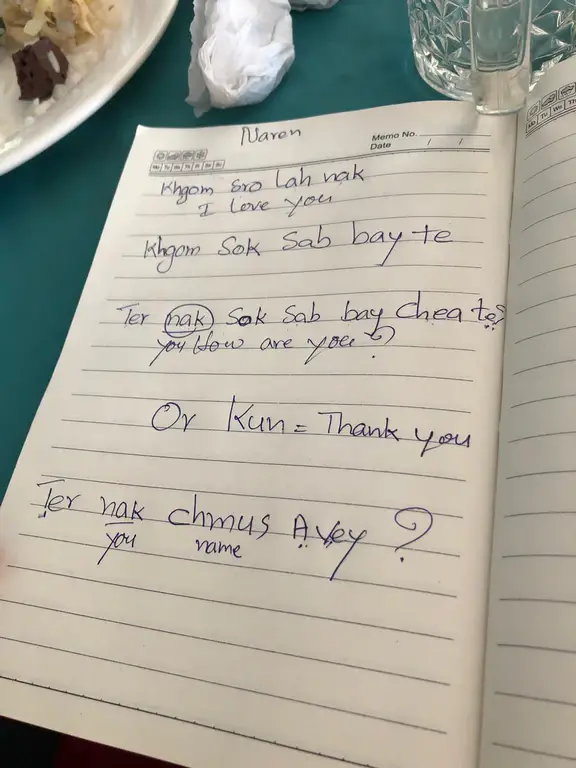 Naren
Memo No.
Date / /
Mo Tu We Th Fr Sa Su
Khgom Sro Lah nak
I love you
Khgom Sok Sab bay te
Ter nak Sok Sab bay Chea te?
you How are you?
Or Kun = Thank you
Ter nak chmus Avey ?
you name
Mo Tu We Th